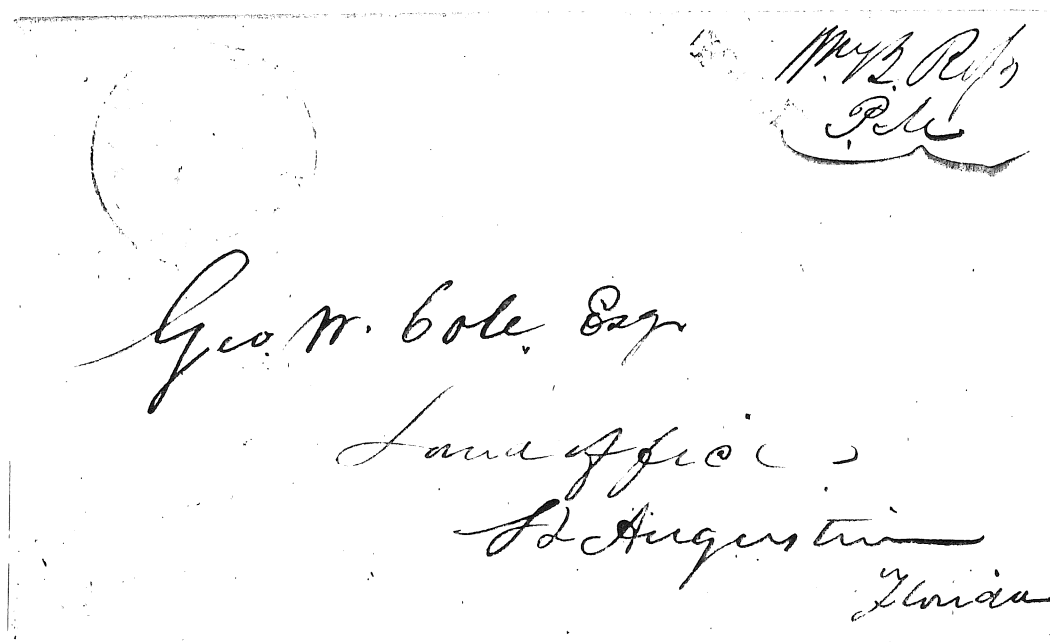 Wm B. Ross
P.M.
Geo. W. Cole. Esqr
Land Office
St Augustine
Florida